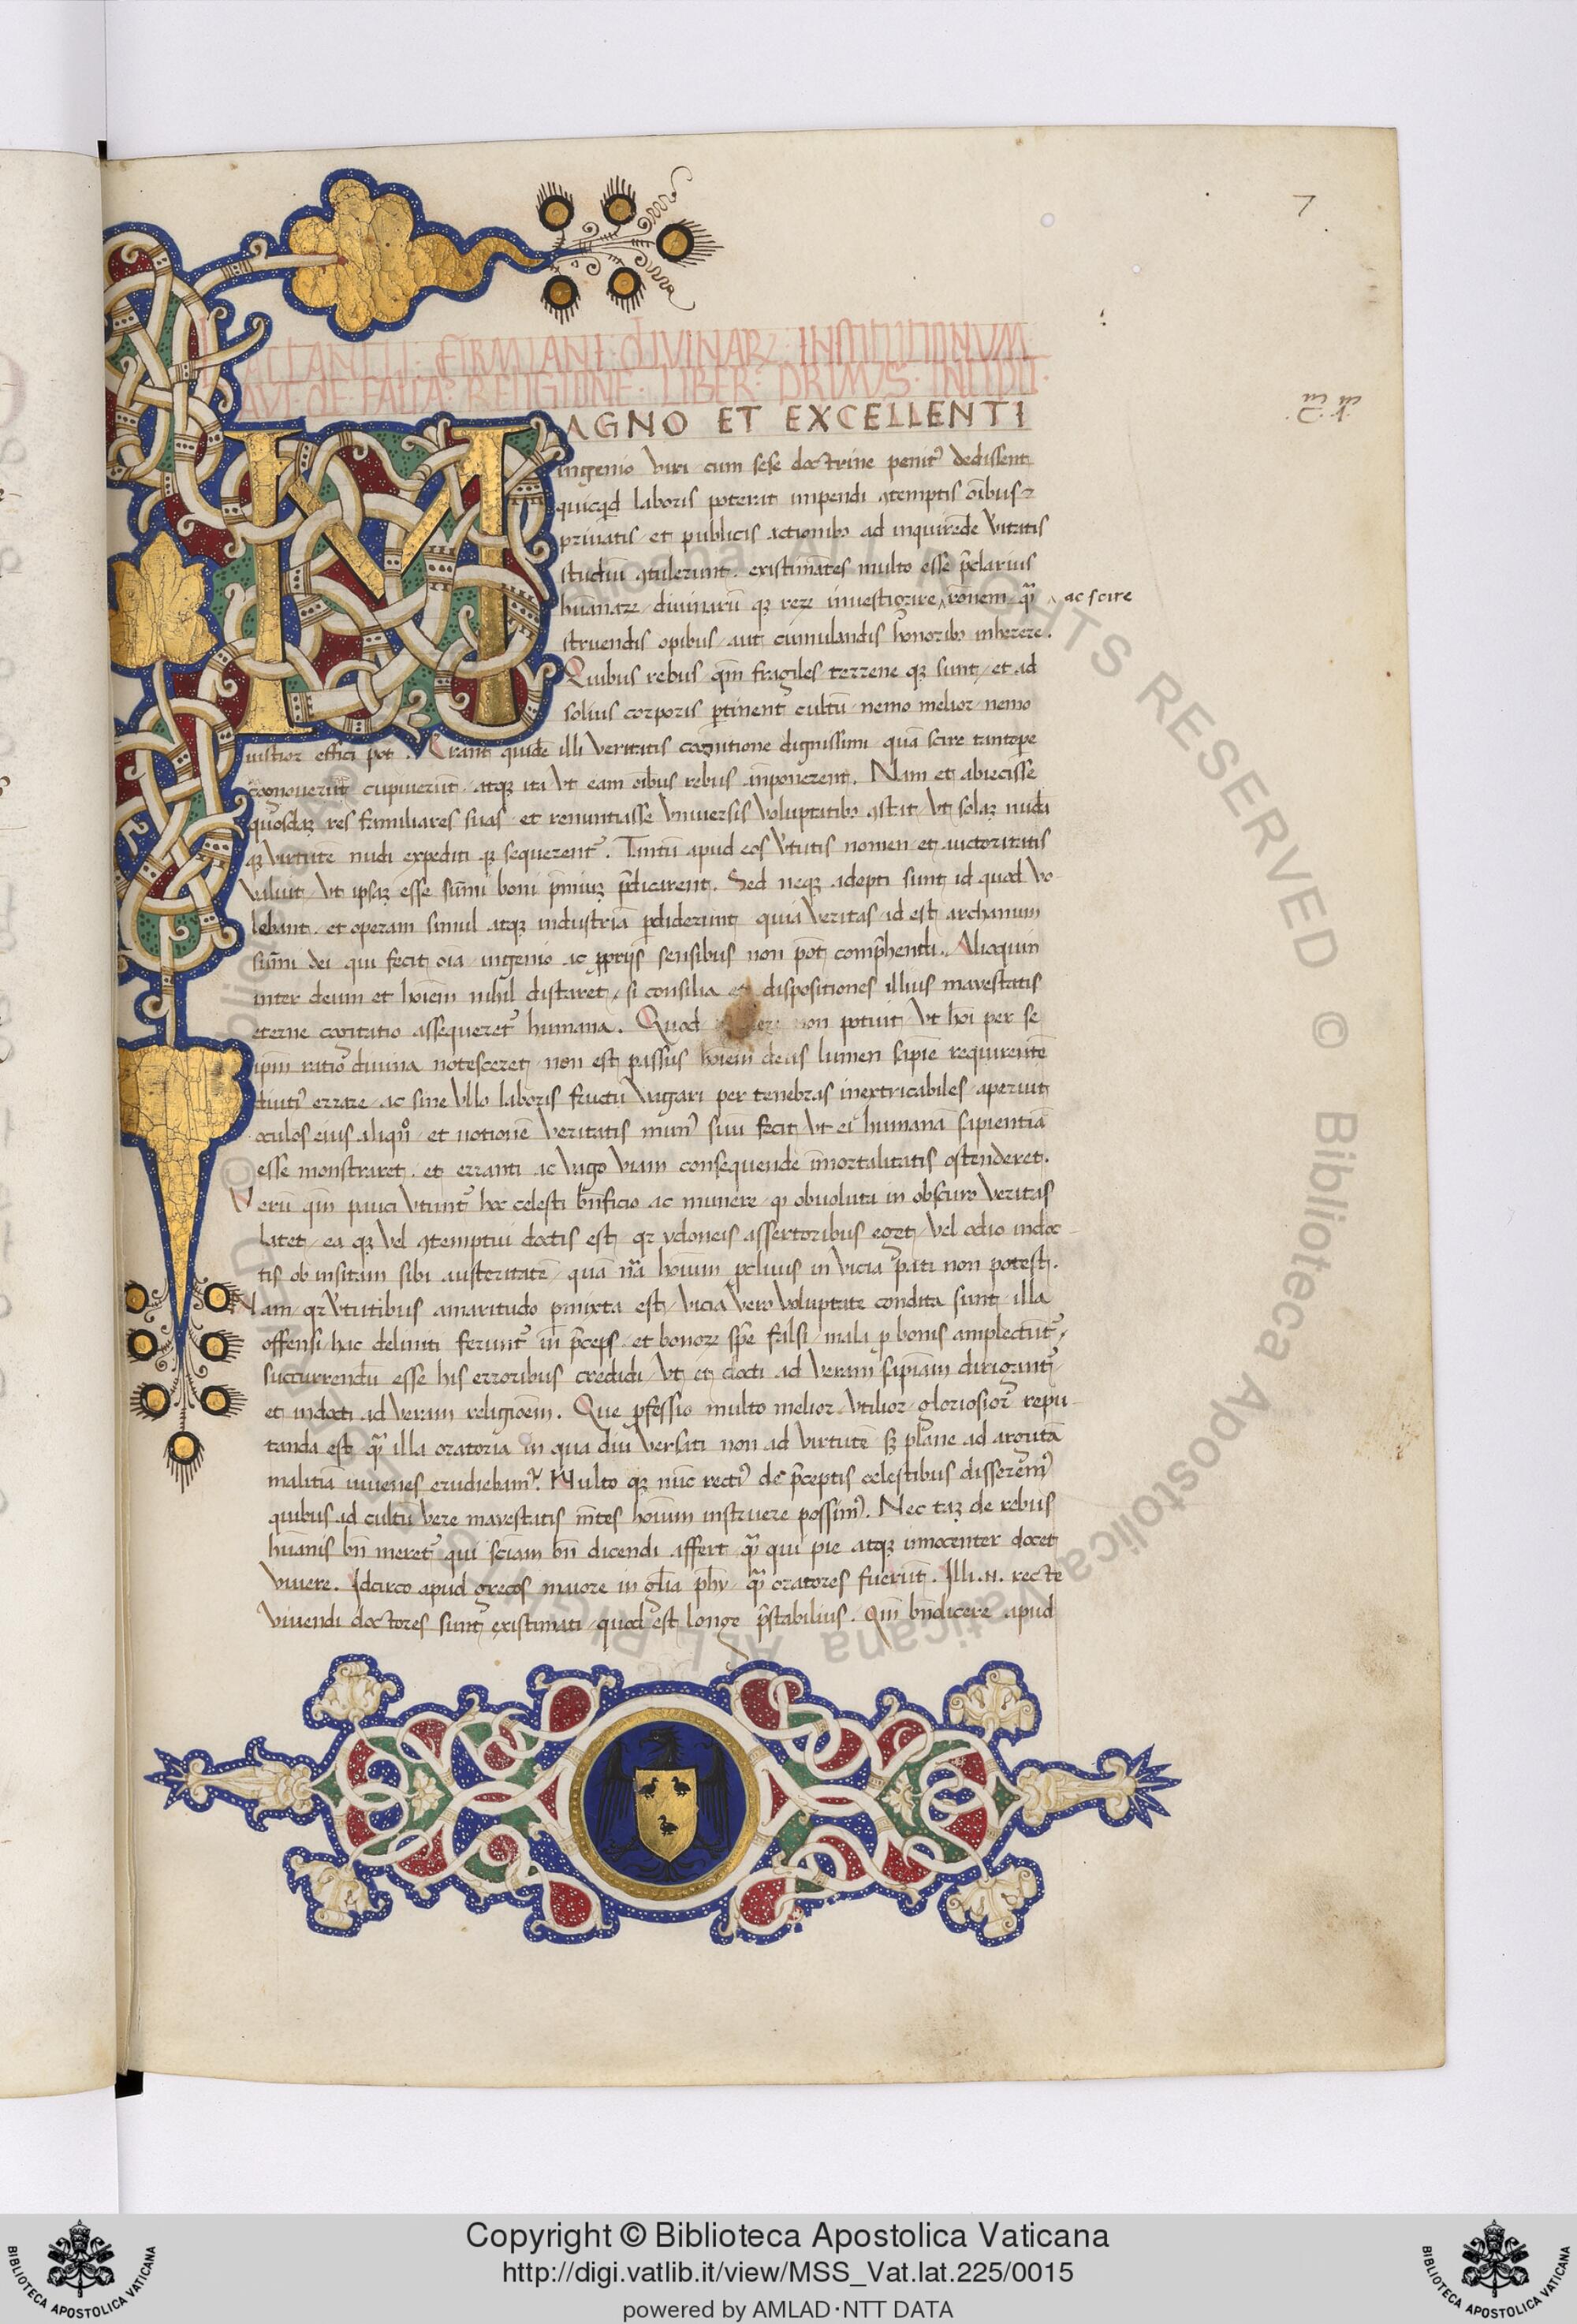 7
LACTANTII · FIRMIANI · DIVINARꝜ · INSTITUTIONVM
LIBER · PRIMVS ·
MAGNO ET EXCELLENTI
ingenio viri cum sese doctrine penitꝰ dedissent
quicqd laboris poterit impendi ꝯtemptis oībus
priuatis et publicis actionibꝫ ad inquirēde v̓itatis
studiū ꝯtulerunt · existimātes multo esse p̄clarius
hūanaꝝ diuinarū qꝫ reꝝ inuestigare ‸ rōnem qᷓ ‸ ac scire
struendis opibus aut cumulandis honoribꝫ inherere.
Quibus rebus qm̄ fragiles terrene qꝫ sunt et ad
solius corporis ꝑtinent cultū nemo melior nemo
iustior effici pot̄. Erant quidē illi veritatis cognitione dignissimi quā scire tantopere
cupiuerūt atqꝫ ita vt eam oībus rebus anponerent. Nam et abiecisse
quosdaꝫ res familiares suas et renuntiasse vniuersis voluptatibꝫ ꝯstat vt solaꝫ nudā
qꝫ virtutē nudi expediti qꝫ sequerentᷣ. Tantū apud eos v̓tutis nomen et auctoritatis
valuit vt ipsaꝫ esse sūmi boni p̄miuꝫ p̄dicarent. Sed neqꝫ adepti sunt id quod vo
lebant et operam simul atqꝫ industriā ꝑdiderunt quia veritas id est archanum
sūmi dei qui fecit oīa ingenio ac ꝓprijs sensibus non pōt comp̄hendi. Alioquin
inter deum et hoīem nihil distaret si consilia et dispositiones illius maiestatis
eterne cogitatio assequeretᷣ humana. Quod non potuit vt hoī per se
ipm̄ ratio diuina notesceret non est passus hoīem deus lumen sapīe requirentē
diutiꝰ errare ac sine vllo laboris fructu vagari per tenebras inextricabiles aperuit
oculos eius aliqn̄ et notionē veritatis munꝰ suū fecit vt et humanā sapientiā
esse monstraret et erranti ac vago viam consequende īmortalitatis ostenderet.
Verū qm̄ pauci vtuntᷣ hoc celesti bn̄ficio ac munere ꝙ obuoluta in obscuro veritas
latet ea qꝫ vel ꝯtemptui doctis est qꝛ ydoneis assertoribus eget vel odio indoc
tis ob insitam sibi austeritatē quā nr̄a hoīum ꝓcliuis in vicia pati non potest.
Nam qꝛ v̓tutibus amaritudo ꝑmixta est vicia vero voluptate condita sunt illa
offensi hac deliniti feruntᷣ in p̄ceps et bonoꝝ spē falsi mala ꝓ bonis amplectūtᷣ
succurrendū esse his erroribus credidi vt et docti ad veram sapīam dirigantᷣ
et indocti ad veram religiōem. Que ꝓfessio multo melior vtilior gloriosior repu
tanda est qᷓ illa oratoria in qua diu versati non ad virtutē sꝫ plane ad argutā
malitiā iuuenes erudiebamꝰ. Multo qꝫ nūc rectiꝰ de p̄ceptis celestibus disseremꝰ
quibus ad cultū vere maiestatis mētes hoīum instruere possimꝰ. Nec taꝫ de rebus
hūanis bn̄ meretᷣ qui scīam bn̄ dicendi affert qᷓ qui pie atqꝫ innocenter docet
viuere. Idcirco apud grecos maiore in gl̄ia ph̄i qᷓ oratores fuerūt. Illi .n. recte
viuendi doctores sunt existimati quod est longe p̄stabilius. Qm̄ bn̄dicere apud
Copyright © Biblioteca Apostolica Vaticana
http://digi.vatlib.it/view/MSS_Vat.lat.225/0015
powered by AMLAD·NTT DATA
BIBLIOTECA APOSTOLICA VATICANA
BIBLIOTECA APOSTOLICA VATICANA